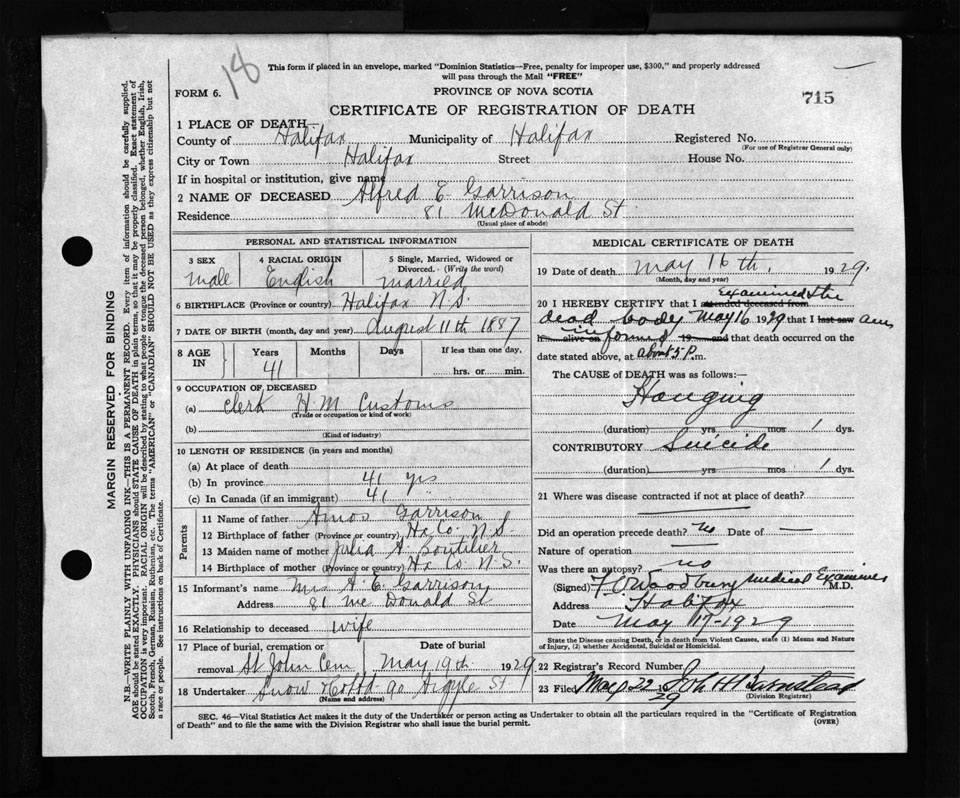 18
This form if placed in an envelope, marked "Dominion Statistics—Free, penalty for improper use, $300," and properly addressed
will pass through the Mail "FREE"
FORM 6.
PROVINCE OF NOVA SCOTIA
715
CERTIFICATE OF REGISTRATION OF DEATH
1 PLACE OF DEATH—
County of Halifax Municipality of Halifax Registered No.
(For use of Registrar General only)
City or Town Halifax Street House No.
If in hospital or institution, give name
2 NAME OF DECEASED Alfred E. Garrison
Residence 81 McDonald St.
(Usual place of abode)
PERSONAL AND STATISTICAL INFORMATION
3 SEX 4 RACIAL ORIGIN 5 Single, Married, Widowed or
Divorced. (Write the word)
Male English Married
6 BIRTHPLACE (Province or country) Halifax N.S.
7 DATE OF BIRTH (month, day and year) August 11th 1887
8 AGE IN Years Months Days If less than one day,
41 hrs. or min.
9 OCCUPATION OF DECEASED
(a) Clerk H.M. Customs
(Trade or occupation or kind of work)
(b)
(Kind of industry)
10 LENGTH OF RESIDENCE (in years and months)
(a) At place of death
(b) In province 41 yrs
(c) In Canada (if an immigrant) 41 "
Parents
11 Name of father Amos Garrison
12 Birthplace of father (Province or country) Hx Co. N.S.
13 Maiden name of mother Julia A. Boutilier
14 Birthplace of mother (Province or country) Hx Co. N.S.
15 Informant's name Mrs A. E. Garrison
Address 81 McDonald St
16 Relationship to deceased Wife
17 Place of burial, cremation or Date of burial
removal St John Cem May 19th 1929
18 Undertaker Snow & Co Ltd 90 Argyle St.
(Name and address)
MEDICAL CERTIFICATE OF DEATH
19 Date of death May 16th, 1929.
(Month, day and year)
Examined the
20 I HEREBY CERTIFY that I attended deceased from
dead body May 16 1929 that I last saw am
h alive on informed 19 and that death occurred on the
date stated above, at about 5 P.m.
The CAUSE of DEATH was as follows:
Hanging
(duration) yrs mos. 1 dys.
CONTRIBUTORY Suicide
(duration) yrs mos. 1 dys.
21 Where was disease contracted if not at place of death?
Did an operation precede death? No Date of —
Nature of operation —
Was there an autopsy? no
(Signed) F O Woodbury Medical Examiner
M.D.
Address Halifax
Date May 17-1929
State the Disease causing Death, or in death from Violent Causes, state (1) Means and Nature
of Injury, (2) whether Accidental, Suicidal or Homicidal.
22 Registrar's Record Number
23 Filed May 22 29 John H Barnstead
(Division Registrar)
SEC. 46—Vital Statistics Act makes it the duty of the Undertaker or person acting as Undertaker to obtain all the particulars required in the "Certificate of Registration
of Death" and to file the same with the Division Registrar who shall issue the burial permit.
(OVER)
MARGIN RESERVED FOR BINDING
N.B.—WRITE PLAINLY WITH UNFADING INK—THIS IS A PERMANENT RECORD. Every item of information should be carefully supplied.
AGE should be stated EXACTLY. PHYSICIANS should STATE CAUSE OF DEATH in plain terms, so that it may be properly classified. Exact statement of
OCCUPATION is very important. RACIAL ORIGIN will be described by stating to what people or tongue the deceased person belonged, whether English, Irish,
Scotch, French, German, Russian, Ruthenian, etc. The terms "AMERICAN" or "CANADIAN" SHOULD NOT BE USED as they express citizenship but not
a race or people. See instructions on back of Certificate.